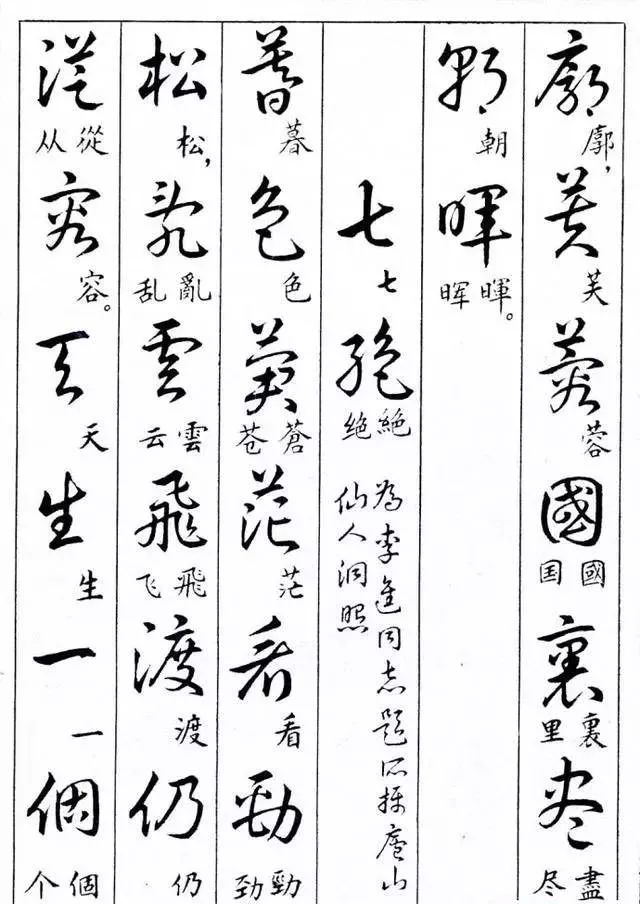 廓芙蓉國裏盡
廓,芙蓉國国裏里盡尽
朝暉
朝暉晖。
七絶
七絶绝
為李進同志题所攝廬山
仙人洞照
暮色蒼茫看勁
暮色蒼苍茫看勁劲
松亂雲飛渡仍
松,亂乱雲云飛飞渡仍
從容天生一個
從从容。天生一個个